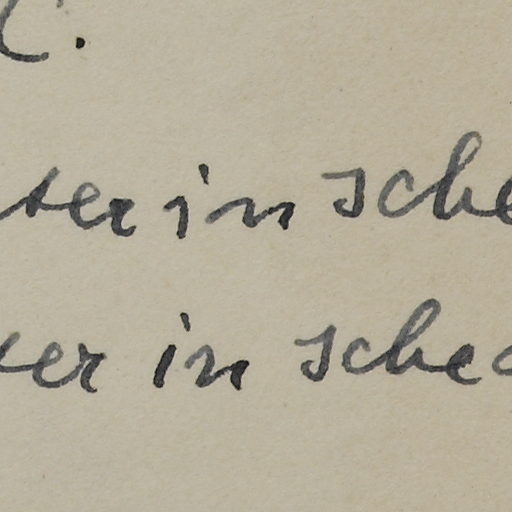 ter in sche
ter in sched